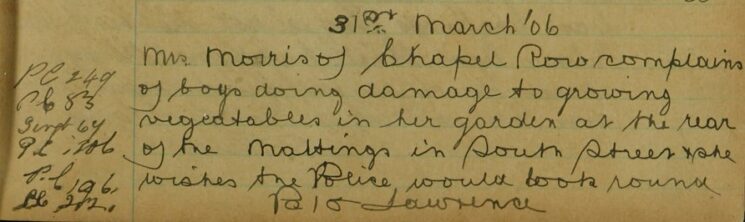 31st March '06
Mrs Morris of Chapel Row complains
PC 249
of boys doing damage to growing
PC 83
vegeatables in her garden at the rear
Sergt 64
of the Maltings in South Street & she
PC
wishes the Police would look round
PC 196
PC
Lawrence